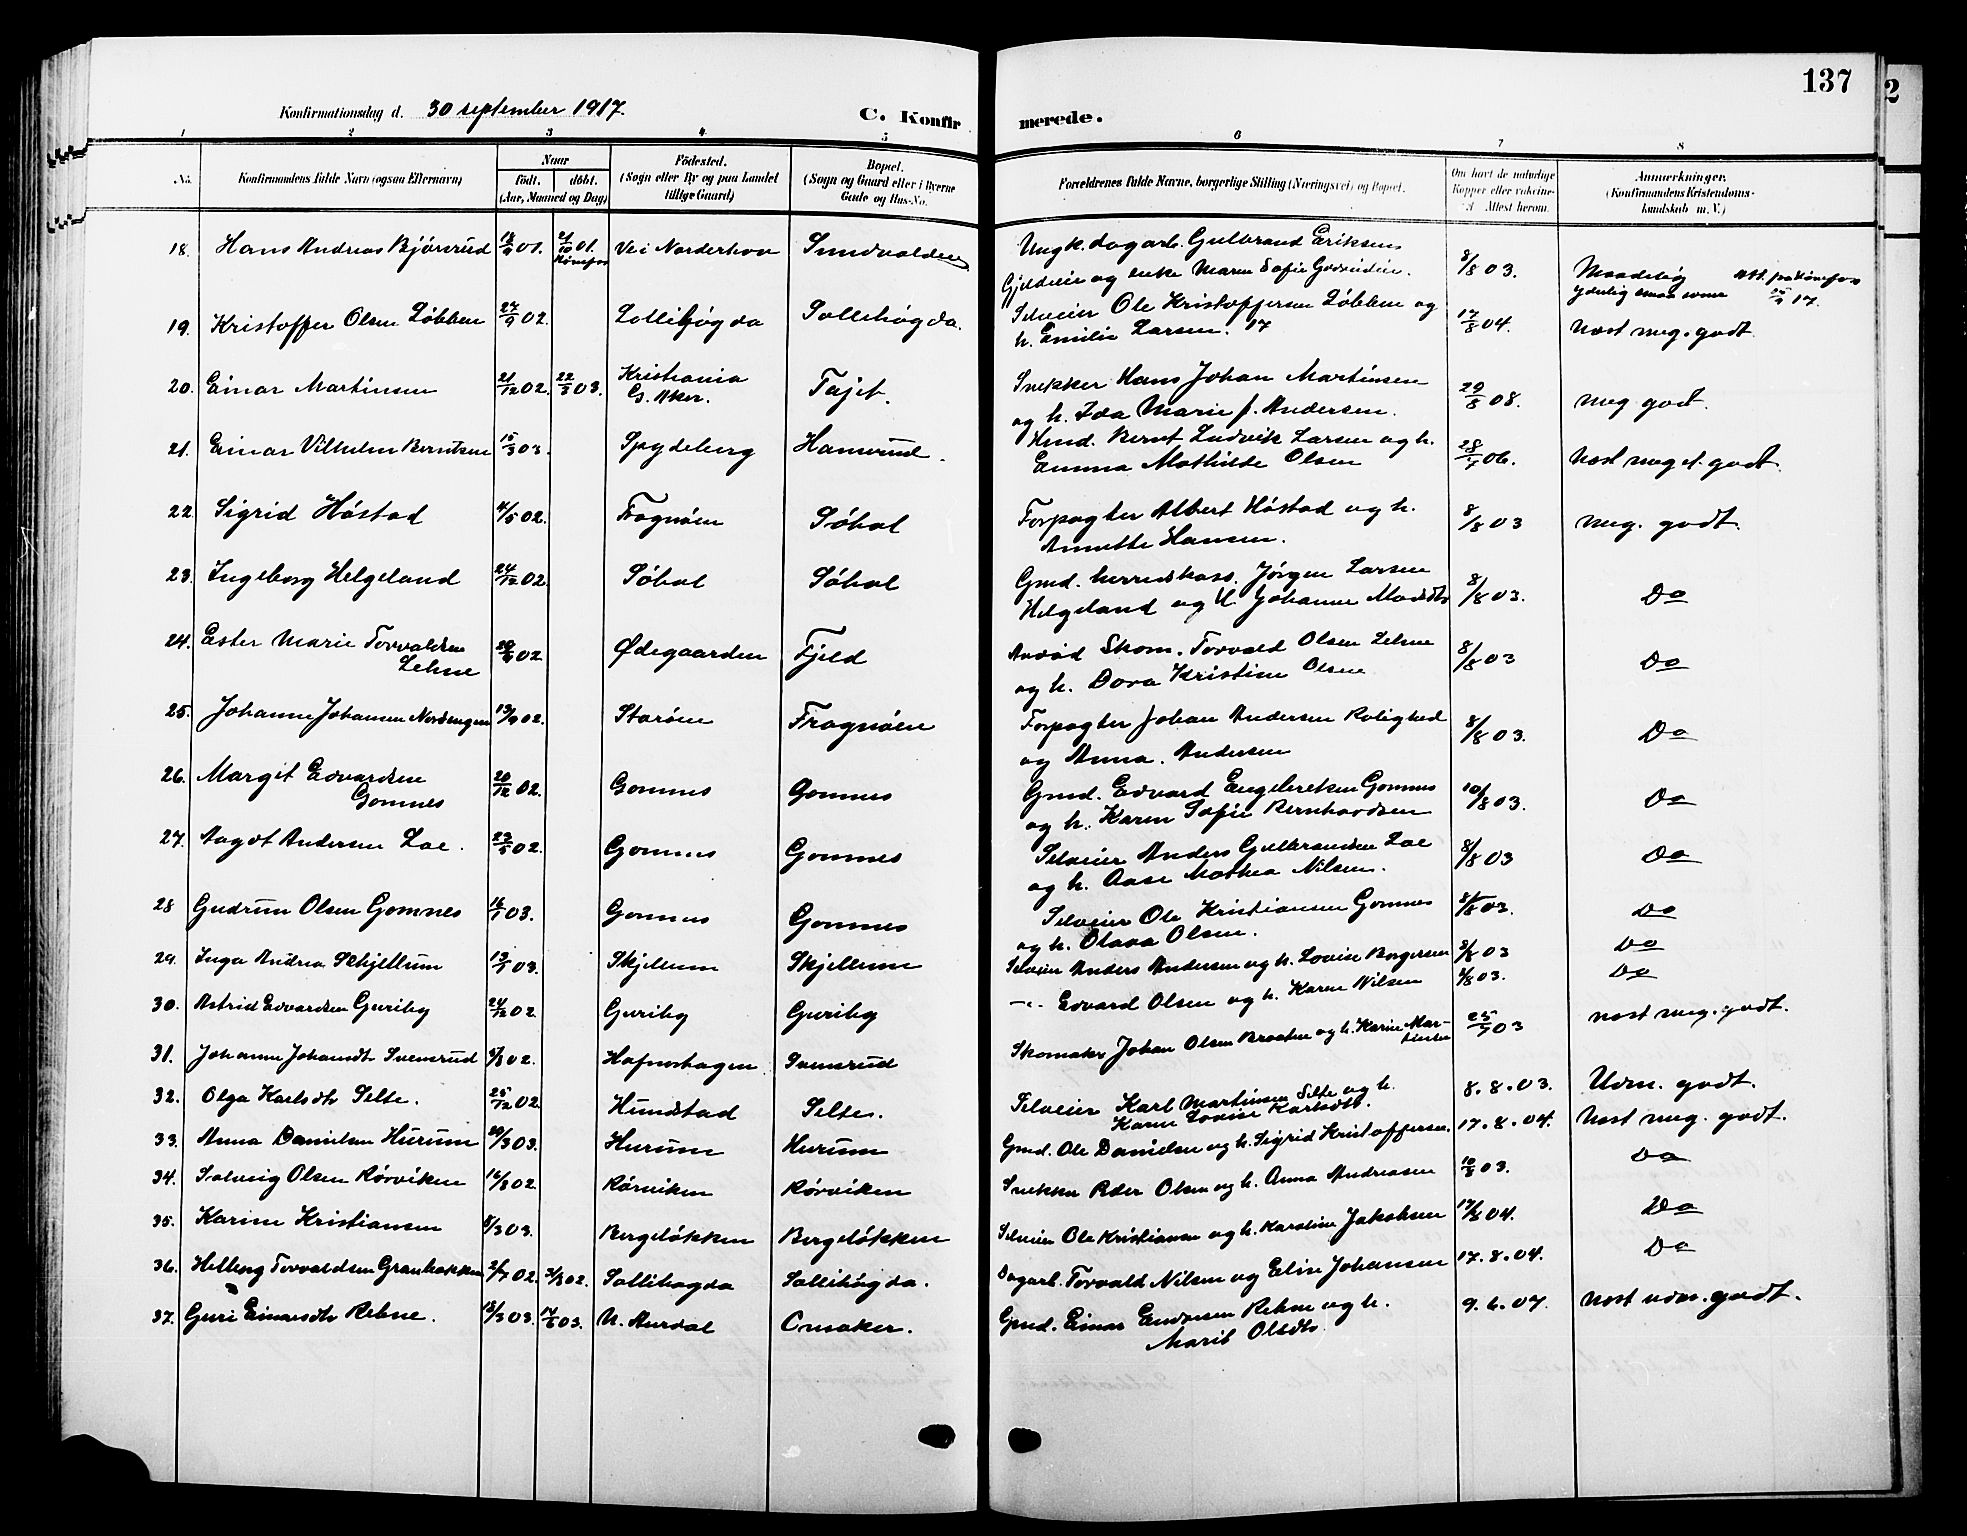 137
2
Konfirmationsdag d. 30 september 1917.
C. Konfirmerede.
1 2 3 4 5 6 7 8
No.
Konfirmandens fulde Navn (ogsaa Efternavn)
Naar
födt. döbt.
(Aar, Maaned og Dag)
Födested.
(Sogn eller By og paa Landet
tillige Gaard)
Bopæl.
(Sogn og Gaard eller i Byerne
Gade og Hus-No.
Forældrenes fulde Navne, borgerlige Stilling (Næringsvei) og Bopæl.
Om havt de naturlige
Kopper eller vaksine-
Attest herom.
Anmærkninger.
(Konfirmandens Kristendoms-
kundskab m. V.)
18. Hans Andreas Bjørnrud 18/9 01. 21/10 01. Hönefos Vei Norderhov Sundvolden Ungk. dagarb. Gulbrand Eriksen
Gjeldeier og enke Maren Sofie 8/8 03. Maadelig
19. Kristoffer Olsen Løbben 27/9 02. Sollihøgda Sollihøgda. Selveier Ole Kristoffersen Løbben og
h. Emilie Larsen. 17 17/8 04. Næst meg. godt.
20. Einar Martinsen 21/12 02. 22/3 03. Kristiania
G. Aker. Fajet. Snekker Hans Johan Martinsen
og h. Ida Marie f. Andersen. 29/8 08. meg godt.
21. Einar Vilhelm Berntsen 15/3 03. Spydeberg Hamrud. Hmd. Bernt Ludvik Larsen og h.
Emma Mathilde Olsen 28/7 06. Næst meget godt.
22. Sigrid Høstad 4/5 02. Frognøen Søhol Forpagter Albert Høstad og h.
Annette Hansen. 8/8 03 meg. godt.
23. Ingeborg Helgeland 24/12 02. Søhol Søhol Gmd. herredskass. Jørgen Larsen
Helgeland og h. Johanne 8/8 03. Do
24. Ester Marie Torvaldsen
Lehne 02 Ødegaarden Fjeld Skom. Torvald Olsen Lehne
og h. Dora Kristine Olsen 8/8 03 Do
25. Johanne Johansen Nordengen 13/9 02. Storøen Frognøen Forpagter Johan Andersen Rolighed
og Anna. Andersen 8/8 03. Do
26. Margit Edvardsen
Gomnes 20/12 02. Gomnes Gomnes Gmd. Edvard Engebretsen Gomnes
og h. Karen Sofie Bernhardsen 10/8 03. Do
27. Aagot Andersen Loe. 23/5 02. Gomnes Gomnes Selveier Anders Gulbrandsen Loe
og h. Aase Mathea Nilsen. 8/8 03 Do
28 Gudrun Olsen Gomnes 16/1 03. Gomnes Gomnes Selveier Ole Kristiansen Gomnes
og h. Olava Olsen. 8/8 03. Do
29. Inga Andrea Skjellum 13/1 03. Skjellum Skjellum Selveier Anders Andersen og h. Lovise Borgersen 8/8 03 Do
30. Astrid Edvardsen Guriby 24/12 02. Guriby Guriby -"- Edvard Olsen og h. Karen Nilsen 8/8 03. Do
31. Johanne Johansdt. Svensrud 02. Hafnorhagen Svensrud Skomaker Johan Olsen Braaten og h. Karine Mar-
tinsen 25/7 03 næst meg. godt.
32. Olga Karlsdtr Selte. 25/12 02. Hundstad Seltes. Selveier Karl Martinsen Selte og h.
Karen Lovise Karlsdtr. 8.8.03. Udm. godt.
33. Anna Danielsen Hurum 20/3 03. Hurum Hurum Gmd. Ole Danielsen og h. Sigrid Kristoffersen. 17.8.04. Næst meg. godt.
34. Solveig Olsen Rørviken 16/8 02. Rørviken Rørviken Snekker Peder Olsen og h. Anna Andreasen 10/8 03. Do
35. Karine Kristiansen 5/3 03. Bergeløkken Bergeløkken Selveier Ole Kristiansen og h. Karoline Jakobsen 17/8 04. Do
36. Helborg Torvaldsen Granbakken 2/7 02. 3/8 02. Sollihøgda Sollihøgda. Dagarb. Torvald Nilsen og Elise Johansen 17.8.04. Do
37. Guri Einarsdtr Rebne. 18/3 03. 14/6 03. N. Aurdal Onsaker. Gmd. Einar Endresen Rebne og h.
Marit Olsdtr. 9.6.07. Næst udm. godt.